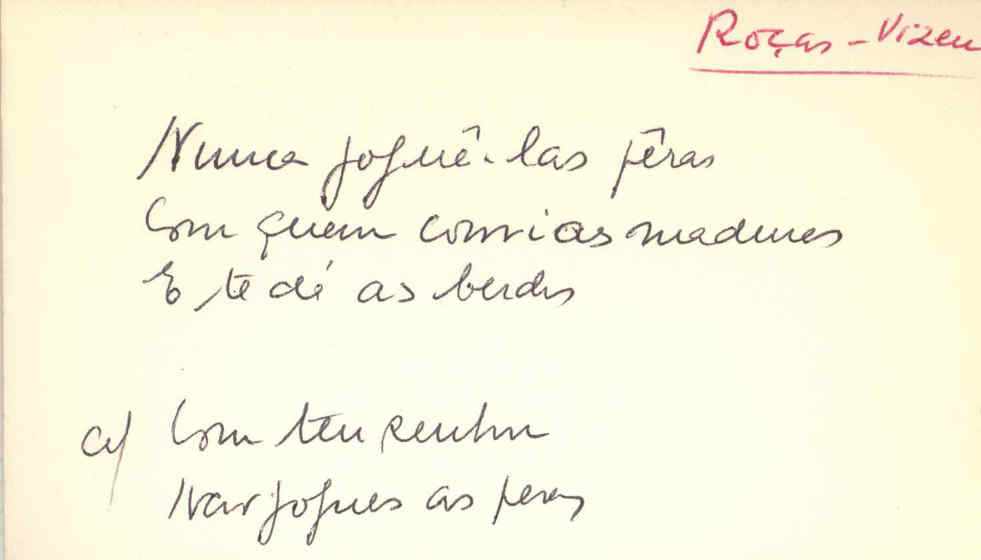 Roças - Vizeu
Nunca joguê-las pêras
Com quem comi as maduras
E te dé as berdes
a) Com teu senhor
Nao jogues as peras